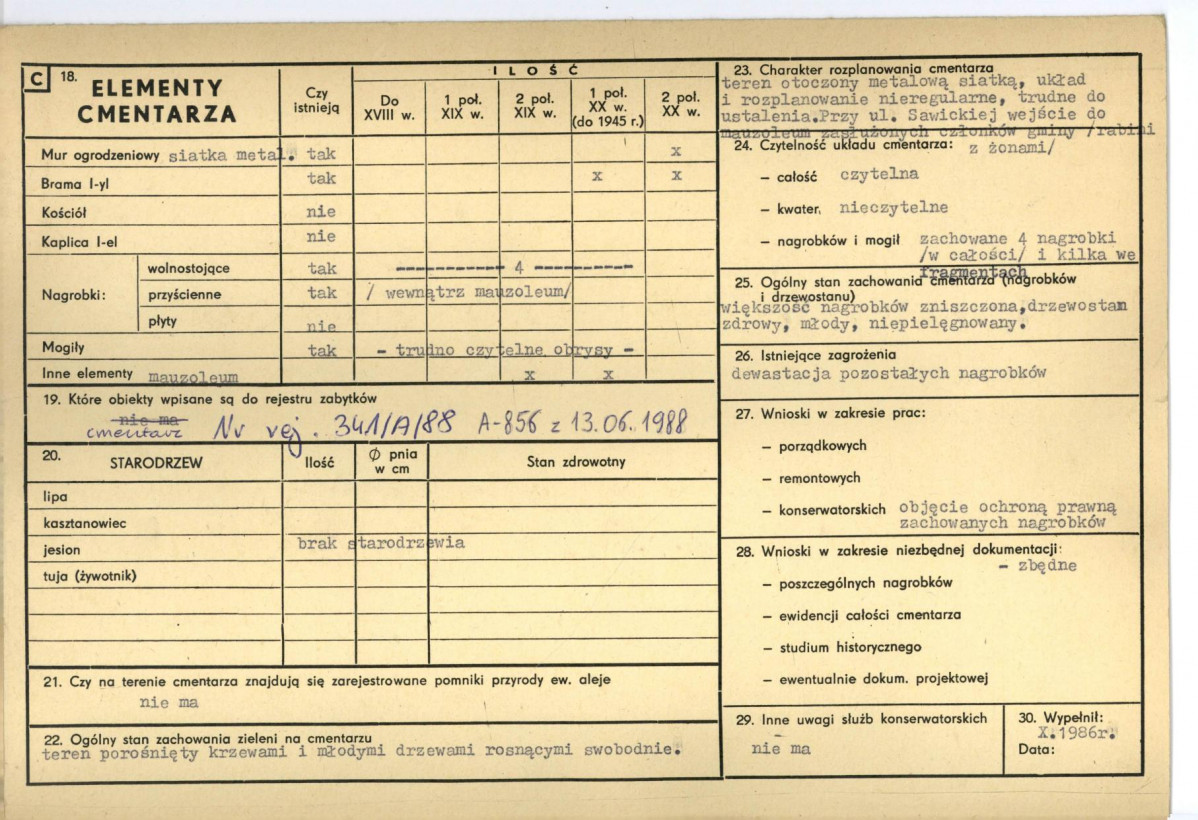 C 18. ELEMENTY CMENTARZA
Czy istnieją
ILOŚĆ
Do XVIII w.
1 poł. XIX w.
2 poł. XIX w.
1 poł. XX w. (do 1945 r.)
2 poł. XX w.
Mur ogrodzeniowy siatka metal. tak x
Brama l-yl tak x x
Kościół nie
Kaplica l-el nie
Nagrobki:
wolnostojące tak ---------- 4 ----------
przyścienne tak / wewnątrz mauzoleum/
płyty nie
Mogiły tak - trudno czytelne obrysy -
Inne elementy mauzoleum x x
19. Które obiekty wpisane są do rejestru zabytków
nie ma
cmentarz Nr rej. 341/A/88 A-856 z 13.06.1988
20. STARODRZEW
Ilość
Ø pnia w cm
Stan zdrowotny
lipa
kasztanowiec
jesion brak starodrzewia
tuja (żywotnik)
21. Czy na terenie cmentarza znajdują się zarejestrowane pomniki przyrody ew. aleje
nie ma
22. Ogólny stan zachowania zieleni na cmentarzu
teren porośnięty krzewami i młodymi drzewami rosnącymi swobodnie.
23. Charakter rozplanowania cmentarza
teren otoczony metalową siatką, układ
i rozplanowanie nieregularne, trudne do
ustalenia.Przy ul. Sawickiej wejście do
mauzoleum zasłużonych członków gminy /rabini
24. Czytelność układu cmentarza: z żonami/
– całość czytelna
– kwater, nieczytelne
– nagrobków i mogił zachowane 4 nagrobki
/w całości/ i kilka we
fragmentach
25. Ogólny stan zachowania cmentarza (nagrobków
i drzewostanu)
większość nagrobków zniszczona,drzewostan
zdrowy, młody, niepielęgnowany.
26. Istniejące zagrożenia
dewastacja pozostałych nagrobków
27. Wnioski w zakresie prac:
– porządkowych
– remontowych
– konserwatorskich objęcie ochroną prawną
zachowanych nagrobków
28. Wnioski w zakresie niezbędnej dokumentacji:
- zbędne
– poszczególnych nagrobków
– ewidencji całości cmentarza
– studium historycznego
– ewentualnie dokum. projektowej
29. Inne uwagi służb konserwatorskich
nie ma
30. Wypełnił:
X.1986r.
Data: